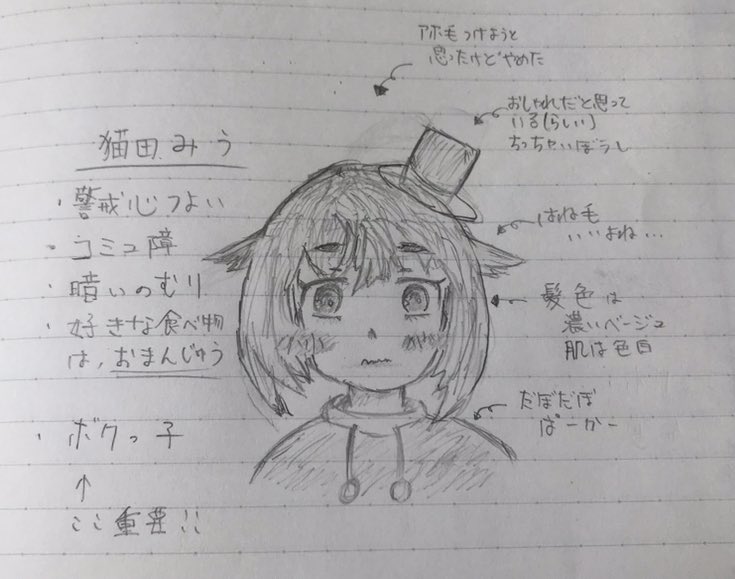 アホ毛つけようと
思ったけどやめた
おしゃれだと思って
いる(らしい)
ちっちゃいぼうし
はね毛
いいよね...
髪色は
濃いベージュ
肌は色白
だぼだぼ
ぱーかー
猫田みう
・警戒心つよい
・コミュ障
・暗いのむり
・好きな食べ物
は、おまんじゅう
・ボクっ子
↑
ここ重要!!